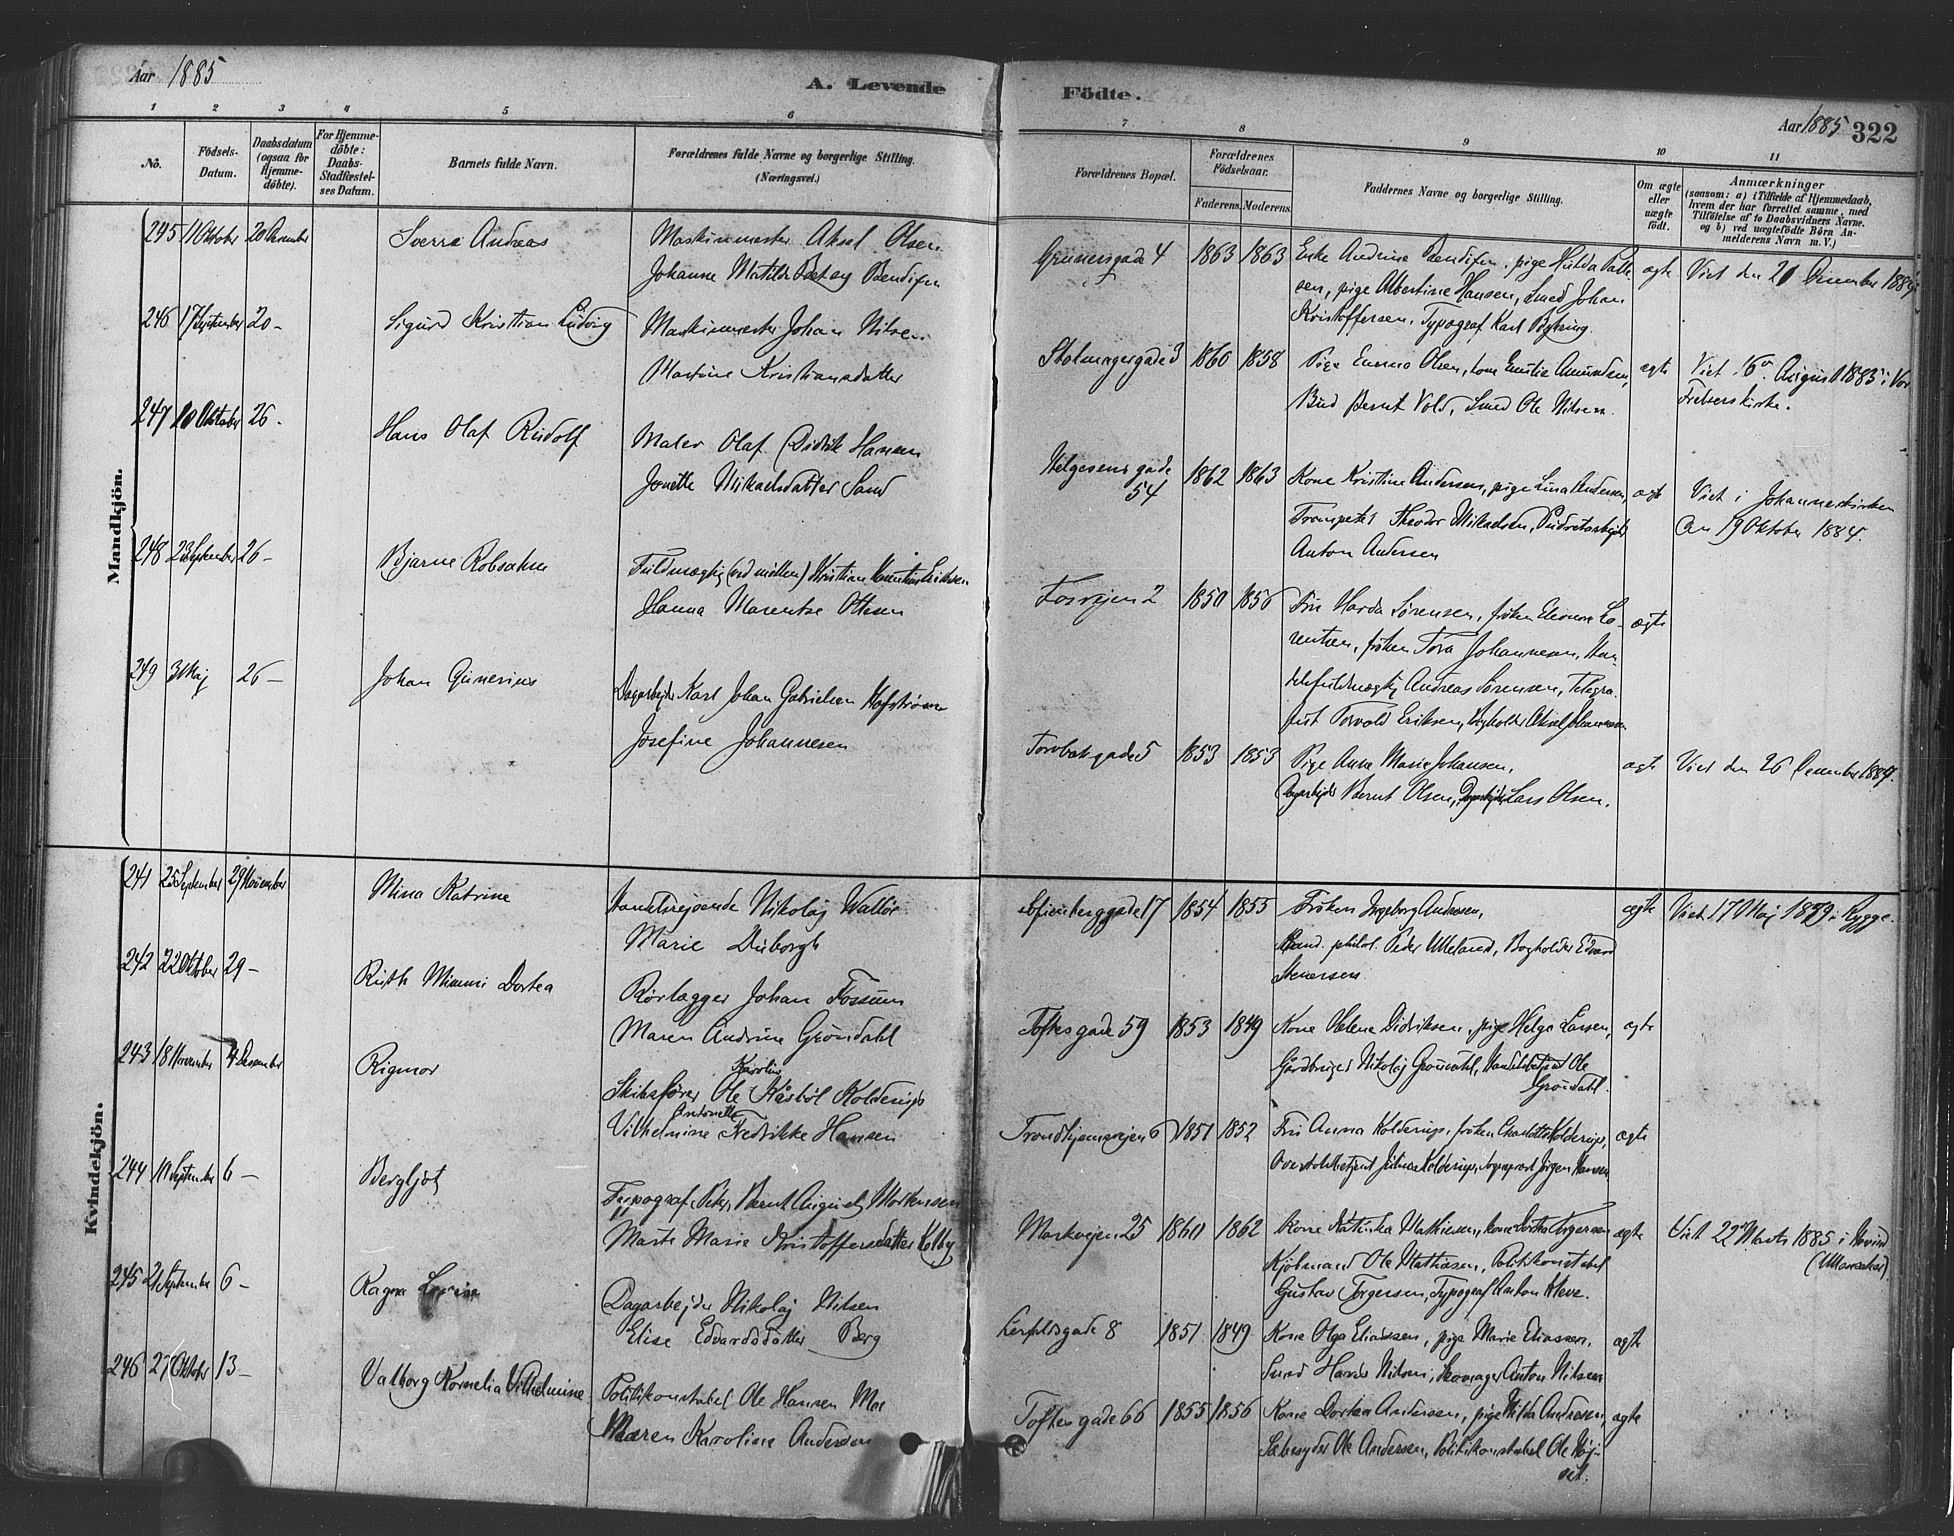 Aar 1885
A. Levende
Födte.
Aar 1885 322
1 2 3 4 5 6 7 8 9 10 11
No.
Födsels-
Datum.
Daabsdatum
(ogsaa for
Hjemme-
döbte).
For Hjemme-
döbte:
Daabs-
Stadfæstel-
ses Datum.
Barnets fulde Navn.
Forældrenes fulde Navne og borgerlige Stilling.
(Næringsvei.)
Forældrenes Bopæl.
Forældrenes
Födselsaar.
Faderens. Moderens.
Faddernes Navne og borgerlige Stilling.
Om ægte
eller
uægte
født.
Anmærkninger
(saasom: a) i Tilfælde af Hjemmedaab,
hvem der har forrettet samme, med
Tilföielse af to Daabsvidners Navne.
og b) ved uægtefödte Börn An-
melderens Navn m. V.)
Mandkjön.
245 11 Oktober 20 December Sverre Andreas Maskinmester Aksel Olsen
Johanne Matilde Bendifen
Grunersgade 4 1863 1863 Enke Andrine Bendifen, pige Hulda
sen, pige Albertine Hansen, Smed Johan
Kristoffersen, Typograf Karl
ægte Viet den December 1884
246 17 September 20 - Sigurd Kristian Ludvig Maskinmester Johan Nilsen
Martine Kristiansdatter
Stolmagergade 3 1860 1858 Pige Emma Olsen, kone Emilie Amundsen,
Bud Bernt Vold, Smed Ole Nilsen.
ægte Viet 16 August 1883 i Vor
Frelsers kirke.
247 Oktober 26 - Hans Olaf Rudolf Maler Olaf Didrik Hansen
Jonette Mikaelsdatter Sand
Helgesens gade
54 1862 1863 Kone Kristine Andersen, pige Lina Andersen,
Trompeter Theodor Mikaelsen,
Anton Andersen
ægte Viet i Johanneskirken
den 19 Oktober 1884.
248 23 September 26 - Bjarne Robsahm Fuldmægtig Kristian Eriksen
Hanna Marentse Ottesen
Fosvejen 2 1850 1856 Fru Harda Sørensen, frøken Eleonora Lo-
rentsen, frøken Tora Johannesen, Han-
delsfuldmægtig Andreas Sørensen, Telegra-
fist Torvald Eriksen, Bogholder Aksel Johannesen
ægte
249 31 Maj 26 - Johan Gunerius Dagarbejder Karl Johan Gabrielsen Hofstrøm
Josefine Johannesen
Torvbakgade 5 1853 1853 Pige Anna Marie Johansen,
Dagarbejder Bernt Olsen, Dagarbejder Lars Olsen.
ægte Viet den 26 December 1884.
Kvindekjön.
241 25 September 29 November Mina Katrine Handelsrejsende Nikolaj Walløe
Marie Duborgh
Sofienberggade 17 1854 1855 Frøken Ingeborg Andersen,
Cand. philol. Peder Ulleland, Bogholder Edvard
Stenersen
ægte Viet 17 Maj 1879 i Rygge.
242 22 Oktober 29 - Ruth Mimmi Dortea Rørlægger Johan Fossum
Maren Andrine Grøndahl
Toftes gade 59 1853 1849 Kone Helene Didriksen, pige Helga Larsen,
Gårdbruger Nikolaj Grøndahl, Handelsbetjent Ole
Grøndahl.
ægte
243 18 November 4 December Rigmor Karolius
Skibsfører Ole Kåsbøl Kolderup
Antonette
Vilhelmine Fredrikke Hansen
Trondhjemsvejen 6 1851 1852 Fru Anna Kolderup, frøken Charlotte Kolderup,
Overtoldbetjent Julius Kolderup, Jørgen Hansen
ægte
244 11 September 6 - Bergljot Typograf Peter Bernt August Mortensen
Marte Marie Kristoffersdatter Kolby
Markvejen 25 1860 1862 Kone Katinka Mathiesen, kone Dorthea Torgersen
Kjøbmand Ole Mathiesen, Politikonstabel
Gustav Torgersen, Typograf Anton Kleve.
ægte Viet 22 Marts 1885 i Hovind
(Ullensaker)
245 21 September 6 - Ragna Lovise Dagarbejder Nikolaj Nilsen
Elise Edvardsdatter Berg
Leopoldsgade 8 1851 1849 Kone Olga Eliassen, pige Marie Eliassen,
Smed Harald Nilsen, Skomager Anton Nilsen
ægte
246 27 Oktober 13 - Valborg Kornelia Vilhelmine Politikonstabel Ole Hansen Moe
Maren Karoline Andersen
Toftes gade 66 1855 1856 Kone Dortea Andersen, pige Hilda Andresen,
Sæbesyder Ole Andersen, Politikonstabel Ole
set.
ægte